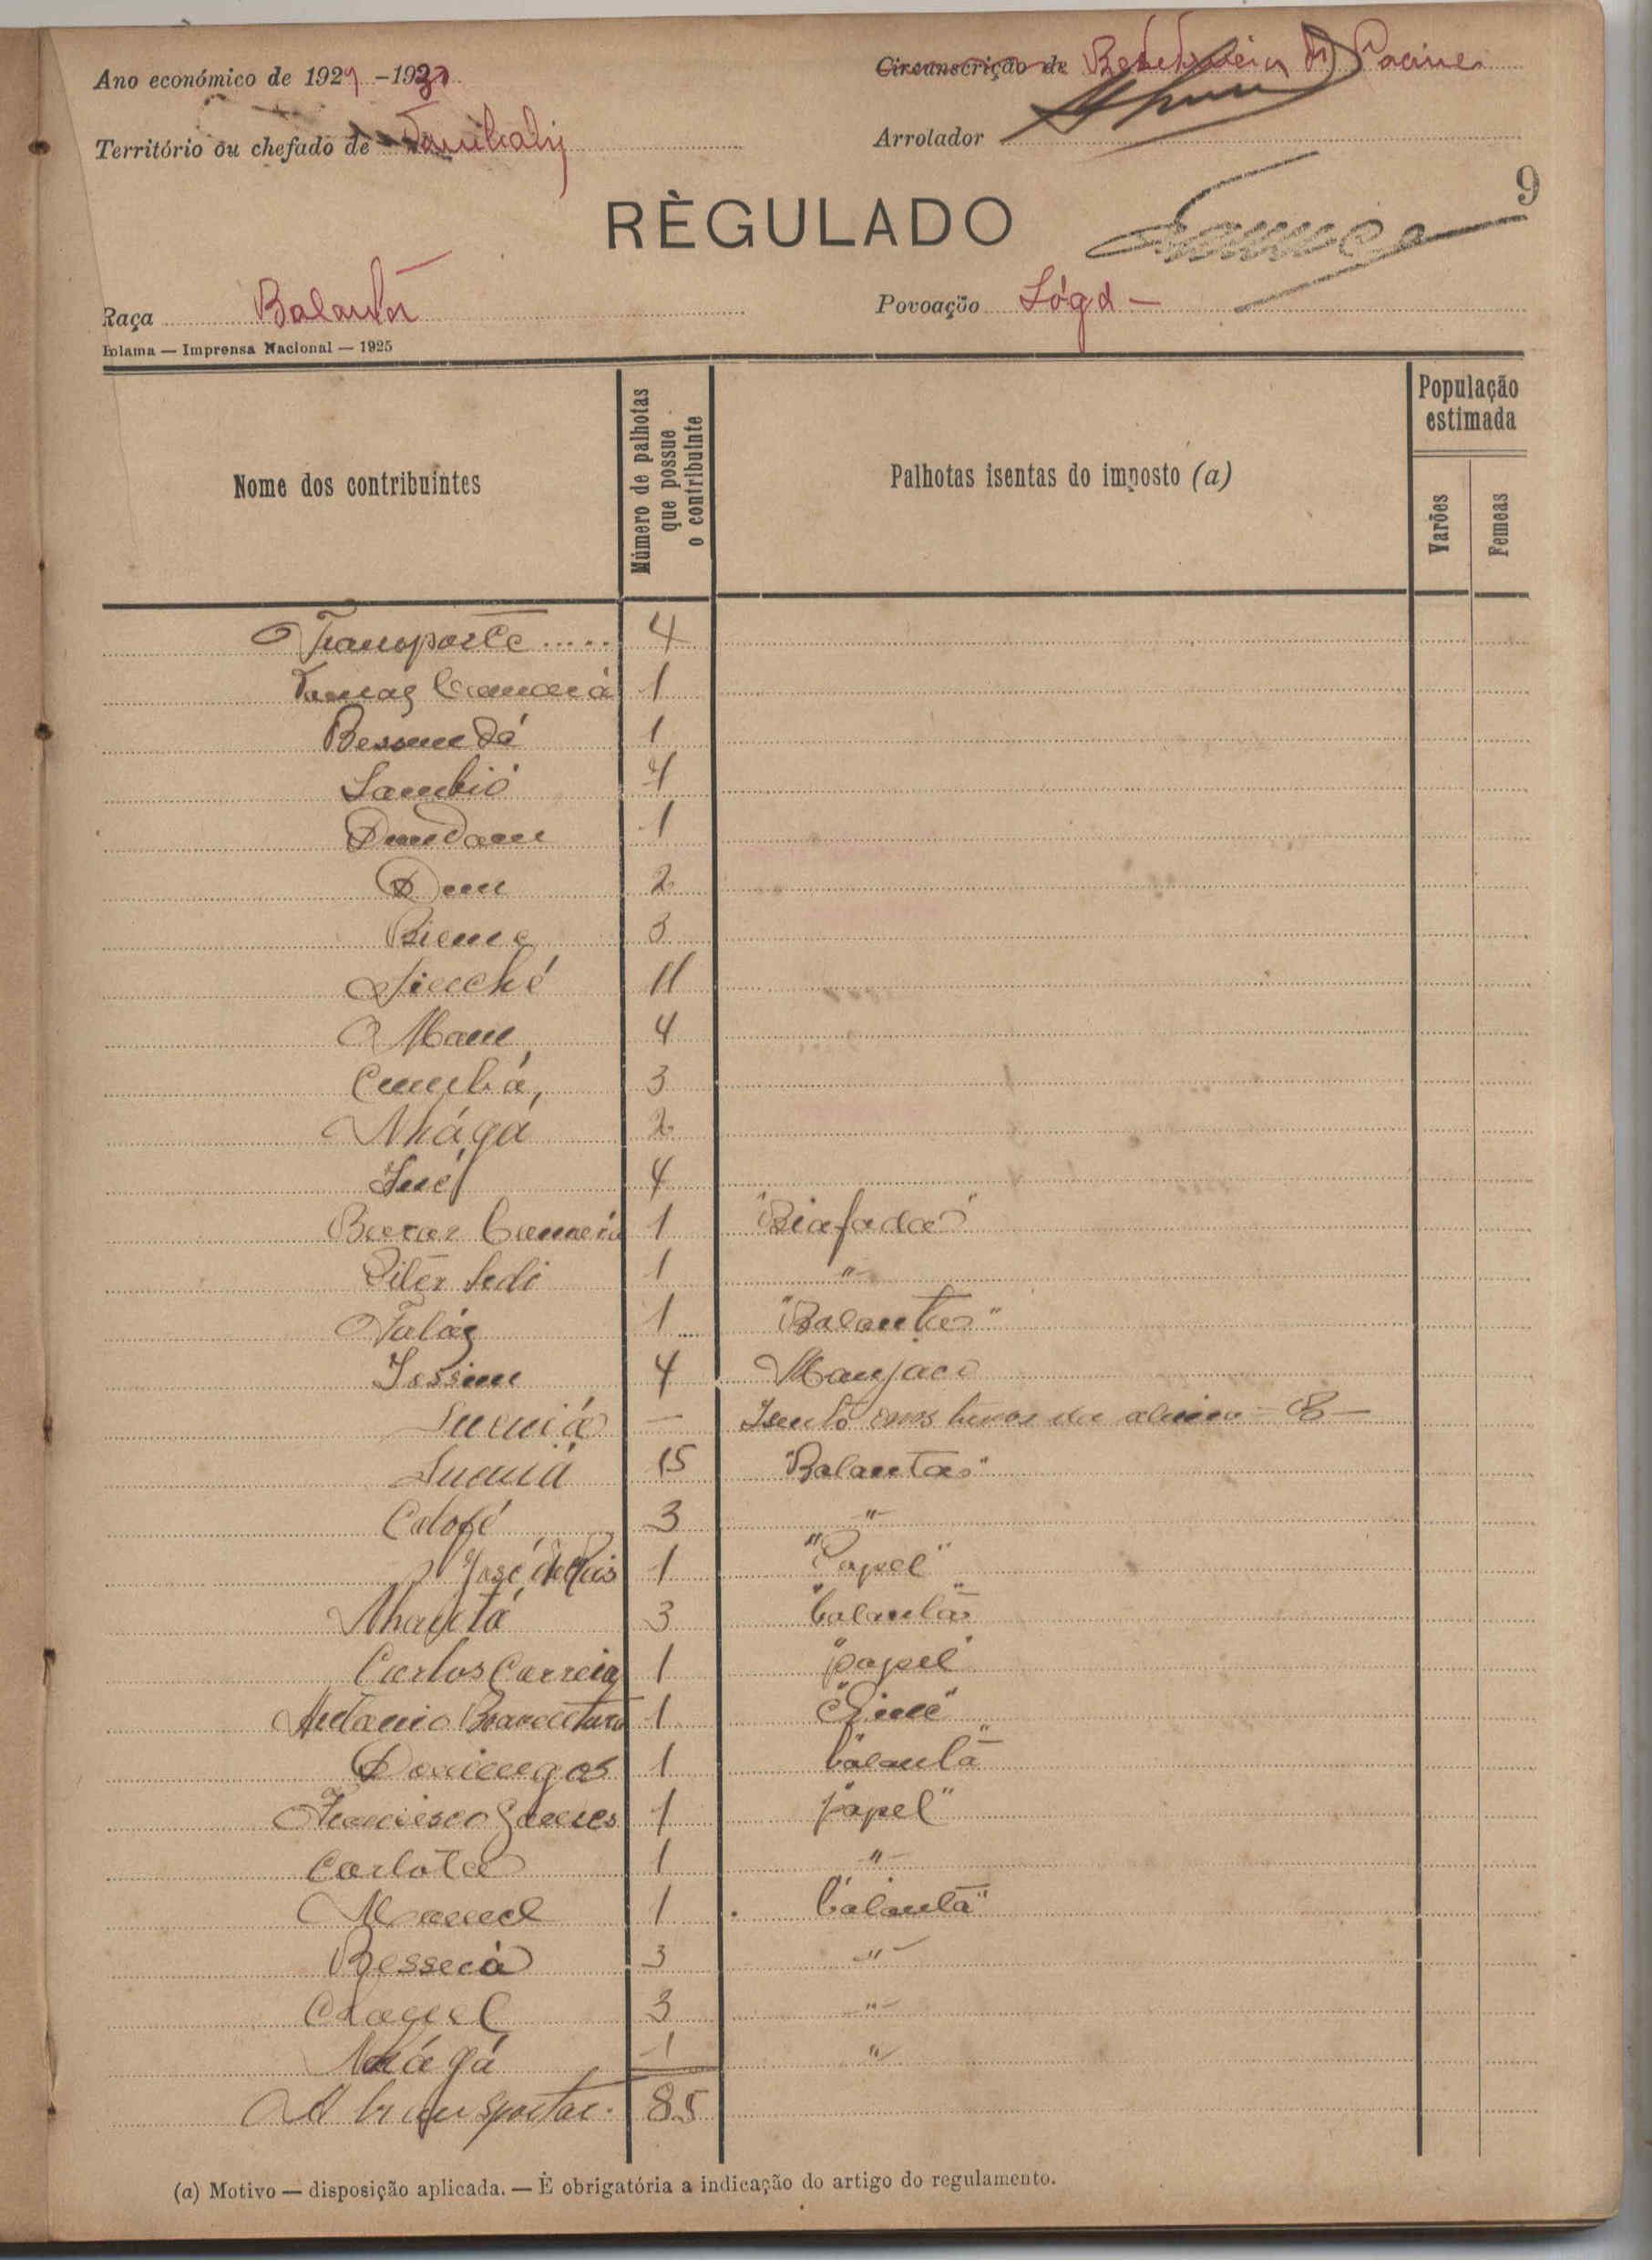 Ano económico de 1929 - 1930
Circunscrição de de Cacine
Território ou chefado de
Arrolador
9
RÈGULADO
Raça Balanta
Povoação Lógá -
Bolama — Imprensa Nacional — 1925
Nome dos contribuintes
Número de palhotas que possue o contribuinte
Palhotas isentas do imposto (a)
População estimada
Varões
Femeas
Transporte ..... 4
Tomaz Camará 1
Bessundá 1
Sambió 4
Dundam 1
Dum 2
Bieme 3
Sinché 11
Mam 4
Cumbá, 3
Nhágá 2
Sué 4
Bacar Camará 1 "Biafadas"
Piter Sedi 1 "
Talás 1 "Balantas"
Issime 4 Manjaco
Sumiá —
Sumiá 15 "Balantas"
Catofé 3 "
José de Pais 1 "Papel"
Nhantá 3 "balantas"
Carlos Correia 1 "papel"
Antonio 1
Domingos 1 balanta"
Francisco Gomes 1 papel"
Carlota 1 "
Manuel 1 balanta"
Bessecá 3 "
3 "
Nhágá 1 "
A transportar. 85
(a) Motivo — disposição aplicada. — È obrigatória a indicação do artigo do regulamento.